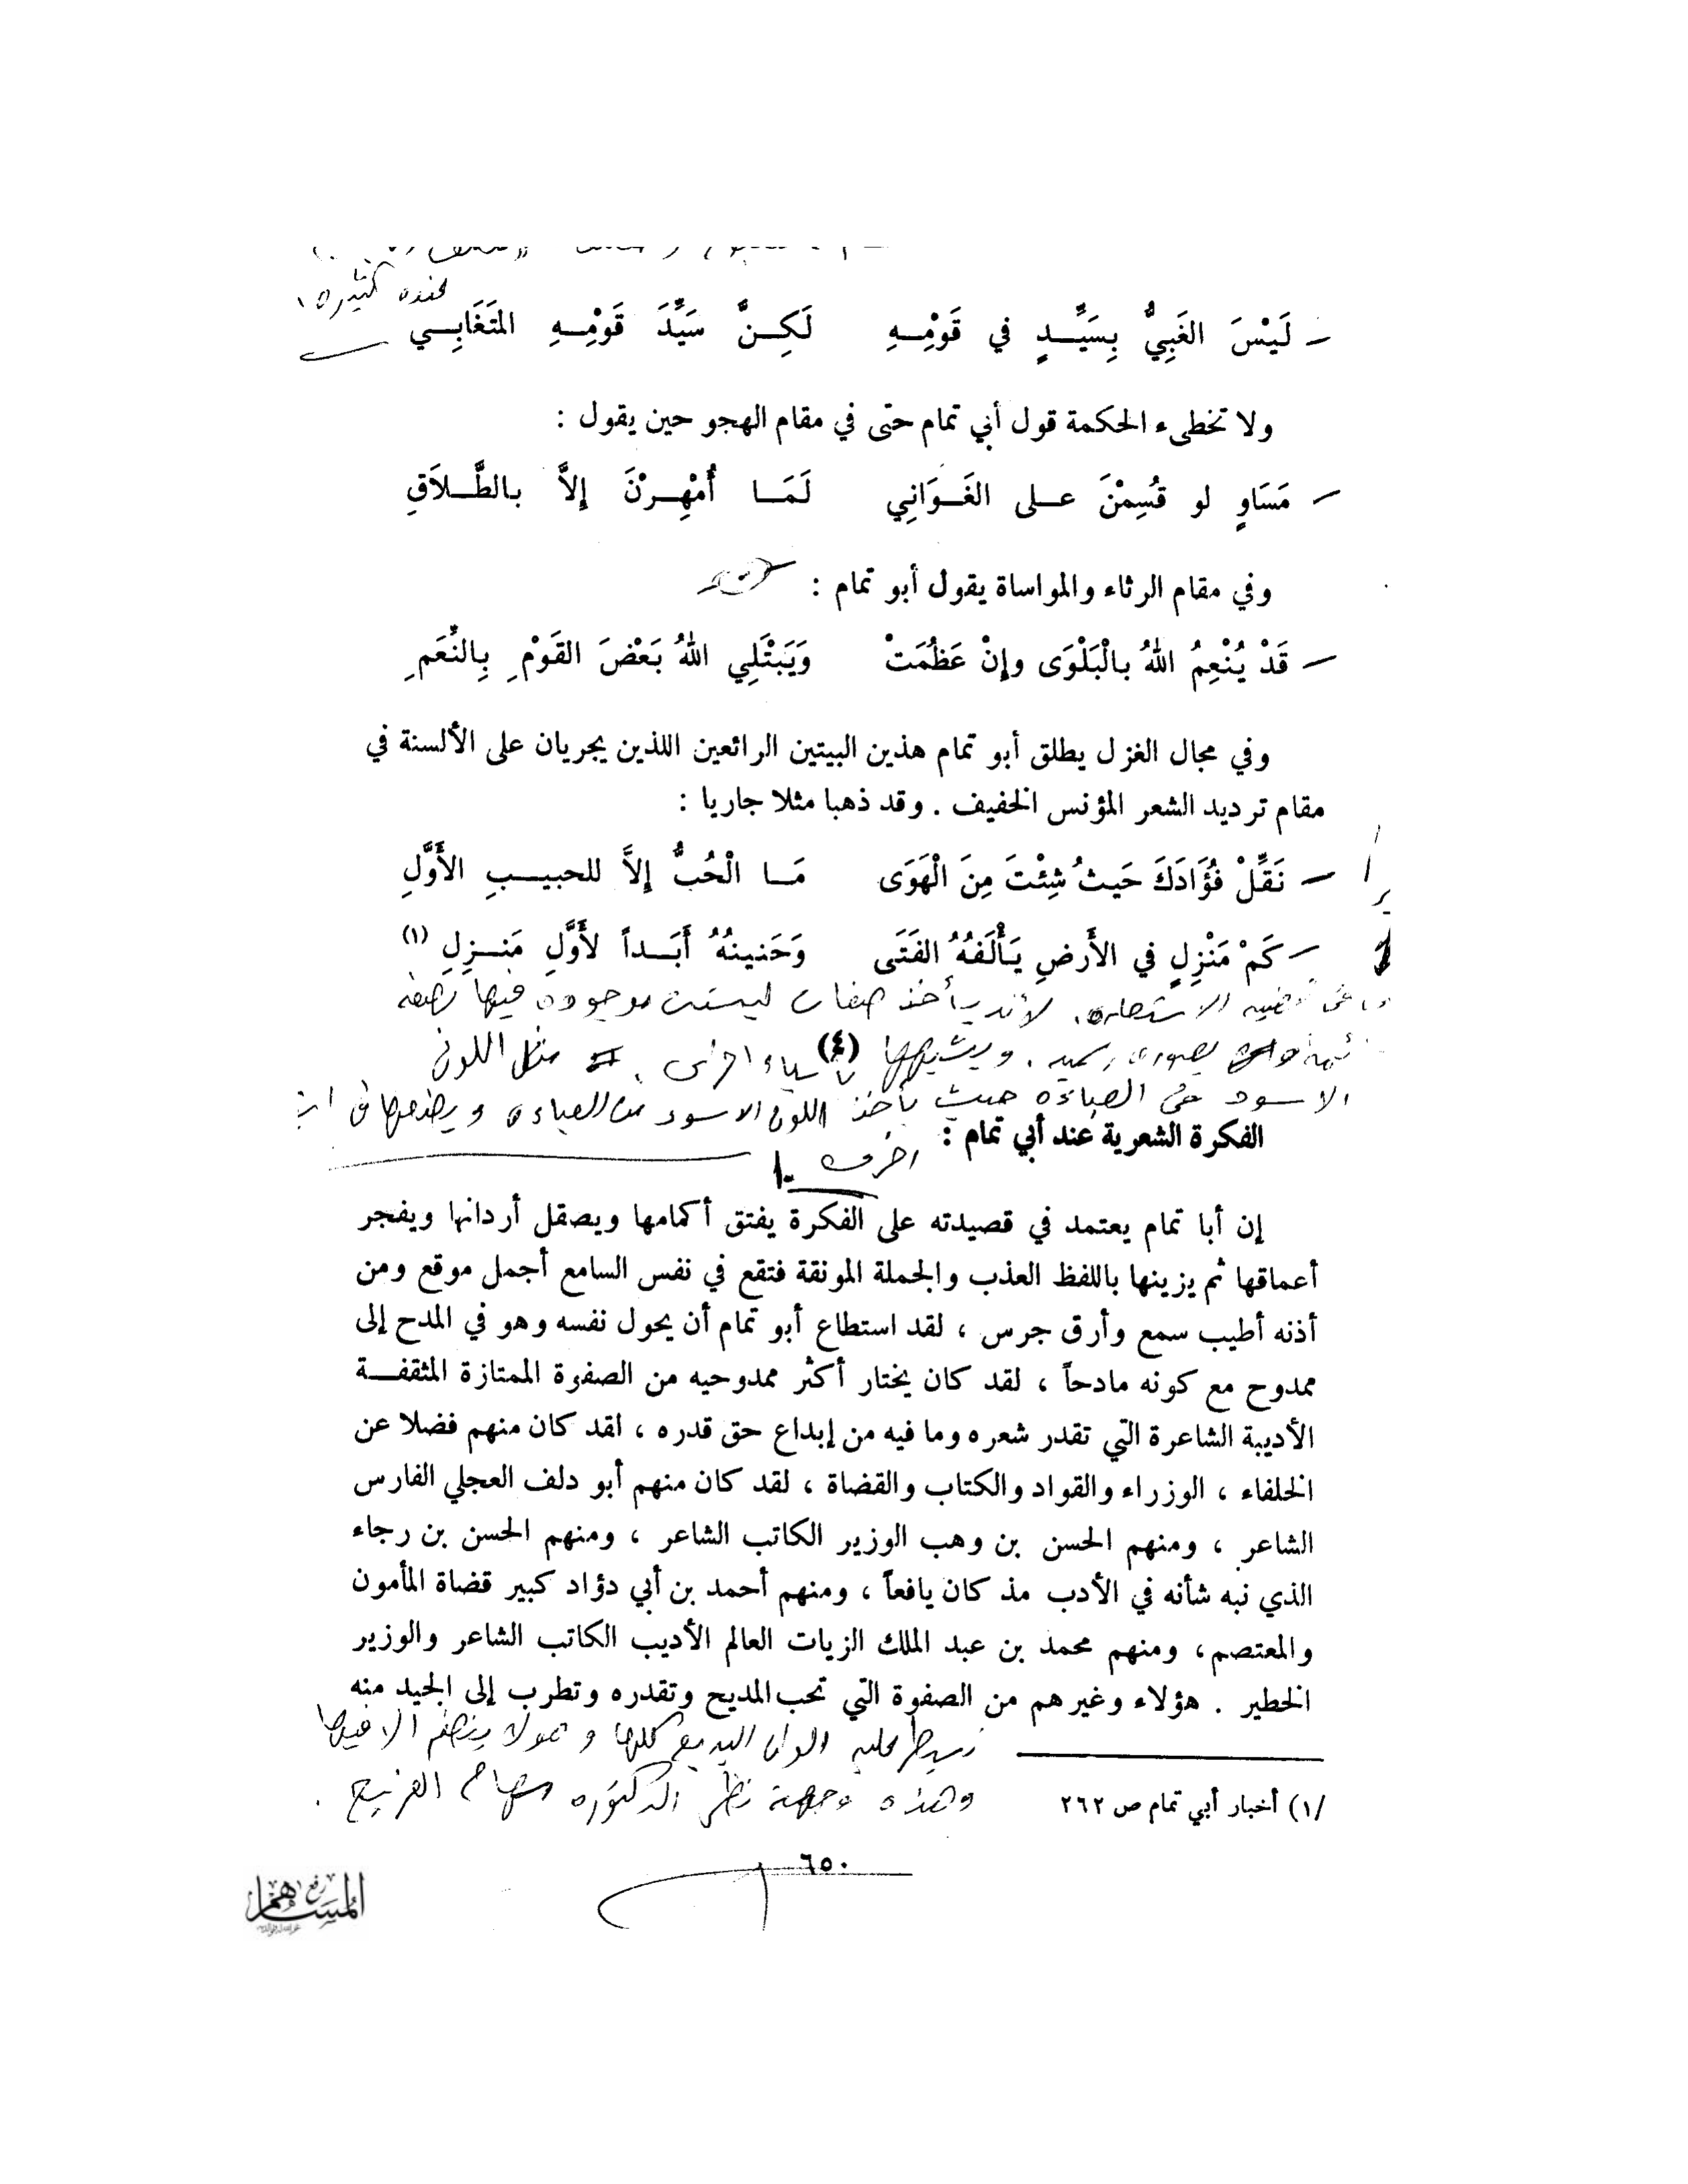 كثيره
– لَيْسَ الغَبِيُّ بِسَيِّدٍ في قَوْمِهِ لَكِنَّ سَيِّدَ قَوْمِهِ المتَغَابِي
ولا تخطىء الحكمة قول أبي تمام حتى في مقام الهجو حين يقول :
– مَسَاوٍ لو قُسِمْنَ على الغَوَانِي لَمَا أُمْهِرْنَ إلاَّ بالطَّلاَقِ
وفي مقام الرثاء والمواساة يقول أبو تمام :
– قَدْ يُنْعِمُ اللهُ بالْبَلْوَى وإنْ عَظُمَتْ وَيَبْتَلِي اللهُ بَعْضَ القَوْمِ بِالنَّعَمِ
وفي مجال الغزل يطلق أبو تمام هذين البيتين الرائعين اللذين يجريان على الألسنة في
مقام ترديد الشعر المؤنس الخفيف . وقد ذهبا مثلا جاريا :
– نَقِّلْ فُؤَادَكَ حَيثُ شِئْتَ مِنَ الْهَوَى مَا الْحُبُّ إلاَّ للحبيبِ الأَوَّلِ
– كَمْ مَنْزِلٍ في الأَرضِ يَأْلَفُهُ الفَتَى وَحَنينهُ أَبَداً لأَوَّلِ مَنزِلِ (١)
الاستعاره . لأنه يأخذ صفات ليست موجوده فيها
بصوره . ويشبهها (٤) بأشياء اخرى . مثل اللون
الاسود في العباءه حيث يأخذ اللون الاسود من العباءه ويضعها في
الفكرة الشعرية عند أبي تمام :
اخرى
إن أبا تمام يعتمد في قصيدته على الفكرة يفتق أكمامها ويصقل أردانها ويفجر
أعماقها ثم يزينها باللفظ العذب والجملة المونقة فتقع في نفس السامع أجمل موقع ومن
أذنه أطيب سمع وأرق جرس ، لقد استطاع أبو تمام أن يحول نفسه وهو في المدح إلى
ممدوح مع كونه مادحاً ، لقد كان يختار أكثر ممدوحيه من الصفوة الممتازة المثقفة
الأديبة الشاعرة التي تقدر شعره وما فيه من إبداع حق قدره ، لقد كان منهم فضلا عن
الخلفاء ، الوزراء والقواد والكتاب والقضاة ، لقد كان منهم أبو دلف العجلي الفارس
الشاعر ، ومنهم الحسن بن وهب الوزير الكاتب الشاعر ، ومنهم الحسن بن رجاء
الذي نبه شأنه في الأدب مذ كان يافعاً ، ومنهم أحمد بن أبي دؤاد كبير قضاة المأمون
والمعتصم، ومنهم محمد بن عبد الملك الزيات العالم الأديب الكاتب الشاعر والوزير
الخطير . هؤلاء وغيرهم من الصفوة التي تحب المديح وتقدره وتطرب إلى الجيد منه
الوان البديع كلها و الا فيها
وهذه وجهة نظر الدكتوره سهام الفريح .
(١) أخبار أبي تمام ص ٢٦٢
٦٥٠